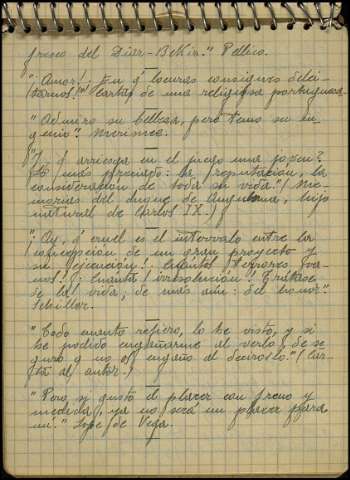 fresco del Dizr-Bekir." Pellico.
"¡Amor! ¿En q' locuras consigues delei-
tarnos?" Cartas de una religiosa portuguesa
"Admiro su belleza, pero temo su in-
genio". Merimée.
"¿Y q' arriesga en el juego una joven?
Lo más preciado: la reputación, la
consideración de toda su vida." (Me-
morias del duque de Angulema, hijo
natural de Carlos IX.)
"¡Oy, q' cruel es el intervalo entre la
concepción de un gran proyecto y
su ejecución! ¡Cuántos terrores va-
nos! ¡Cuánta irresolución! Trátase
de la vida, de más aún: del honor."
Schiller.
"Todo cuanto refiero, lo he visto, y si
he podido engañarme al verlo, de se-
guro q' no os engaño al decíroslo." (Car-
ta al autor.)
"Pero, si gusto el placer con freno y
medida, ya no será un placer para
mí." Lope de Vega.